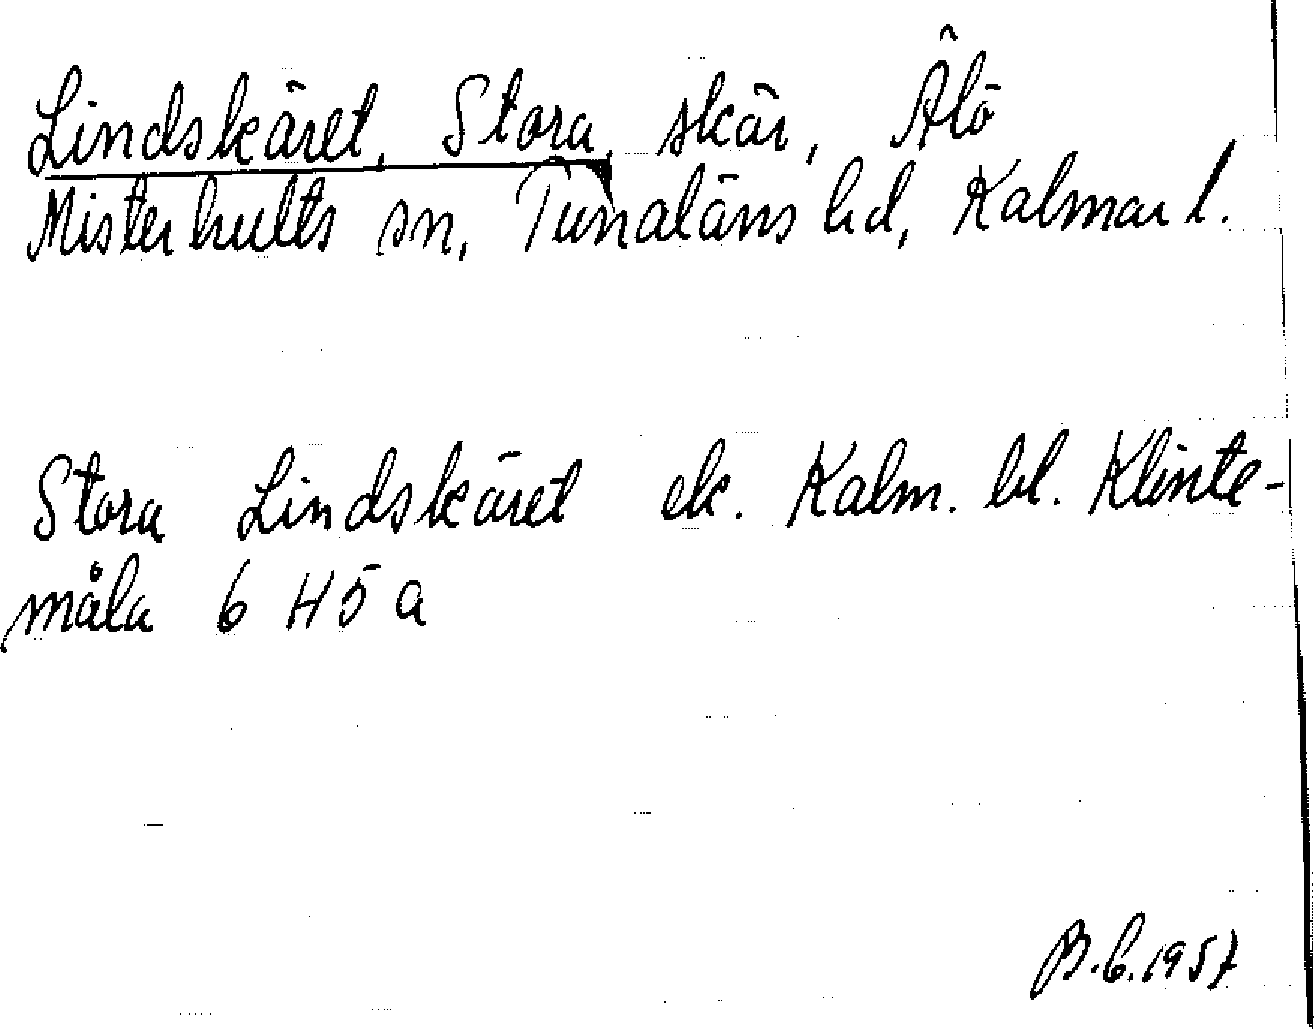 Lindskäret, Stora, skär, Älö
Misterhults sn, Tunaläns hd, Kalmar l.
Stora Lindskäret ek. Kalm. bl. Klinte-
måla 6 H 5 a
B.C. 1957